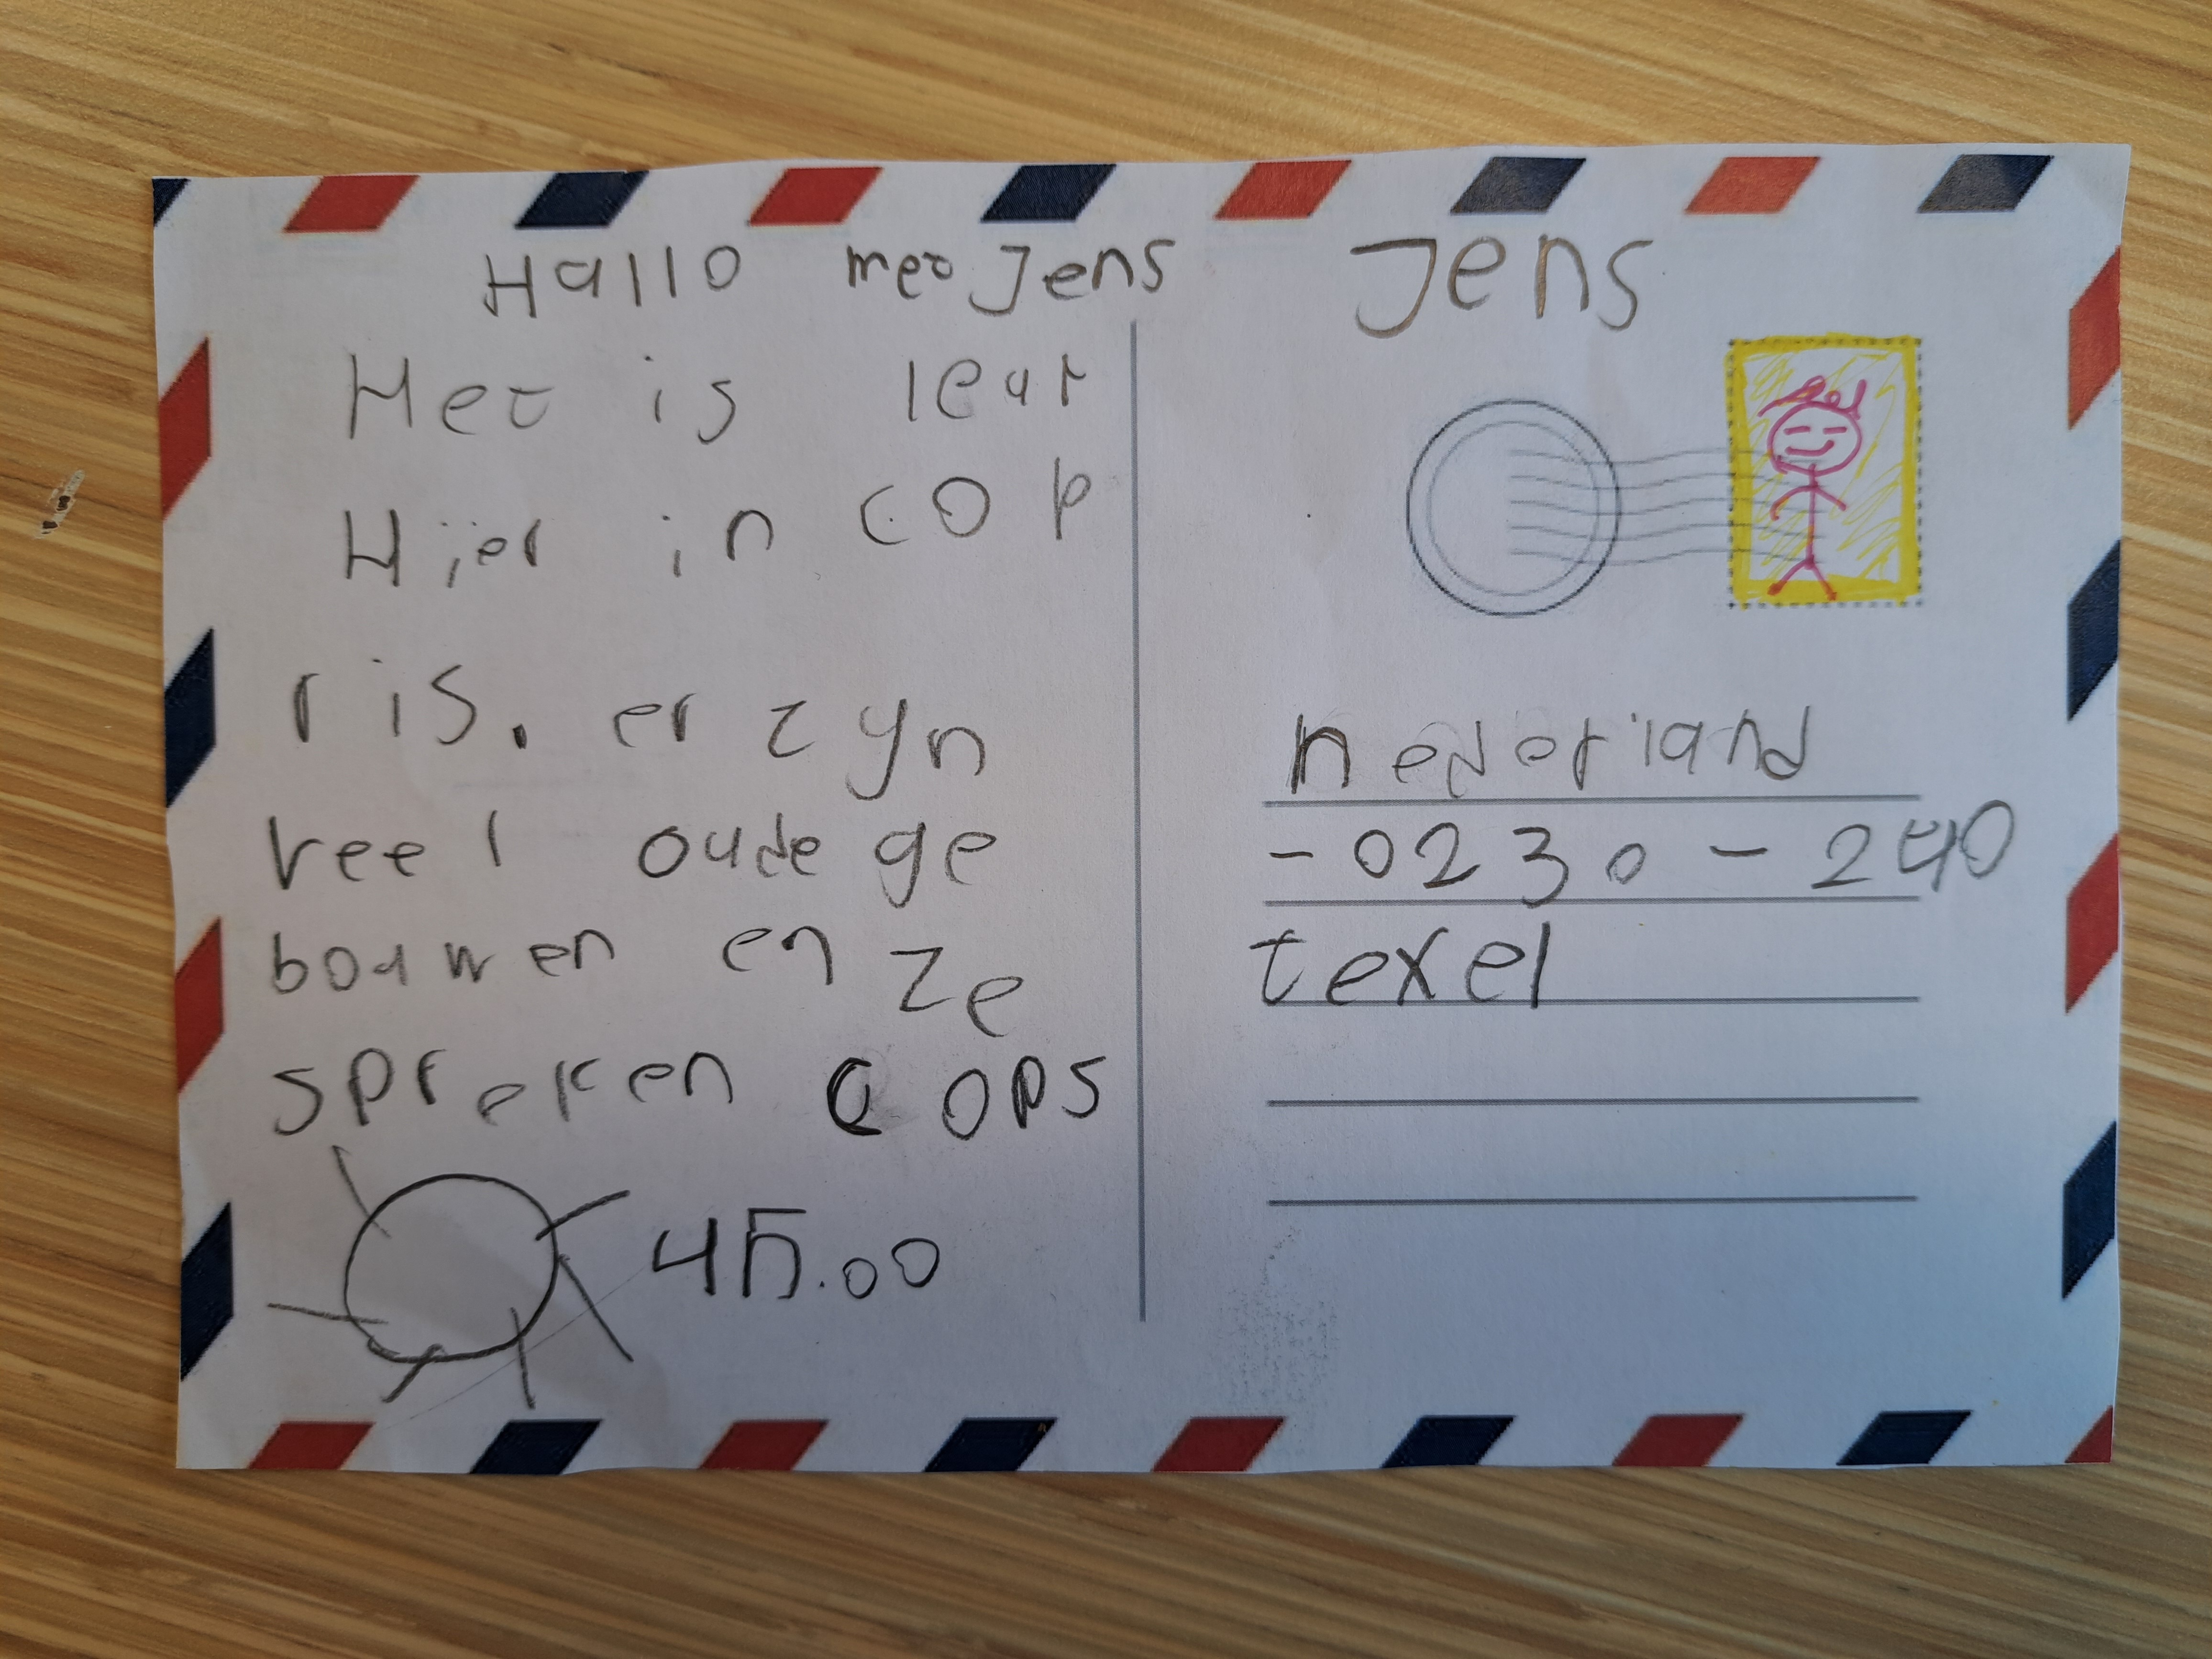 Hallo met Jens
Het is leur
Hier in cop
ris. er zyn
veel oude ge
bouwen en ze
spreken cops
45.00
Jens
nederland
-0230-240
texel